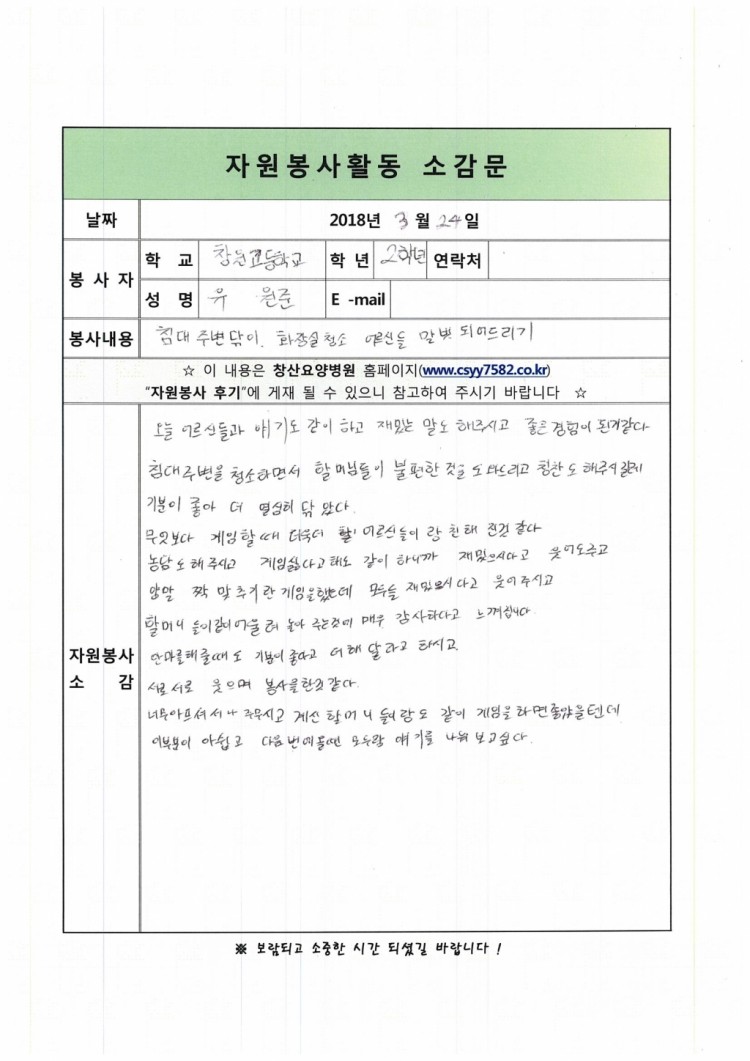 자원봉사활동 소감문
날짜 2018년 3월 24일
봉사자 학 교 창원고등학교 학 년 2학년 연락처
성 명 유 원준 E -mail
봉사내용 침대 주변닦이. 화장실청소 어르신들 말벗 되어드리기
☆ 이 내용은 창산요양병원 홈페이지(www.csyy7582.co.kr)
"자원봉사 후기"에 게재 될 수 있으니 참고하여 주시기 바랍니다 ☆
자원봉사 소 감
오늘 어르신들과 얘기도 같이 하고 재밌는 말도 해주시고 좋은 경험이 된거같다
침대주변을 청소하면서 할머님들이 불편한 것을 도와드리고 칭찬도 해주셔
기분이 좋아 더 열심히 닦았다.
무엇보다 게임할 때 더욱더 어르신들이랑 친해 진것 같다
농담도 해주시고 게임싫다고해도 같이 하니까 재밌으시다고 웃어도주고
양말 짝 맞추기란 게임을했는데 모두들 재밌으시다고 웃어주시고
할머니들이랑 어울려 놀아 주는것에 매우 감사하다고 느껴집니다.
안마를해줄때도 기분이좋다고 더해달라고 하시고
서로서로 웃으며 봉사을한것같다.
너무아프셔서 주무시고 계신 할머니들이랑도 같이 게임을하면좋았을텐데
이부분이 아쉽고 다음번에올땐 모두랑 얘기를 나눠보고싶다.
※ 보람되고 소중한 시간 되셨길 바랍니다 !